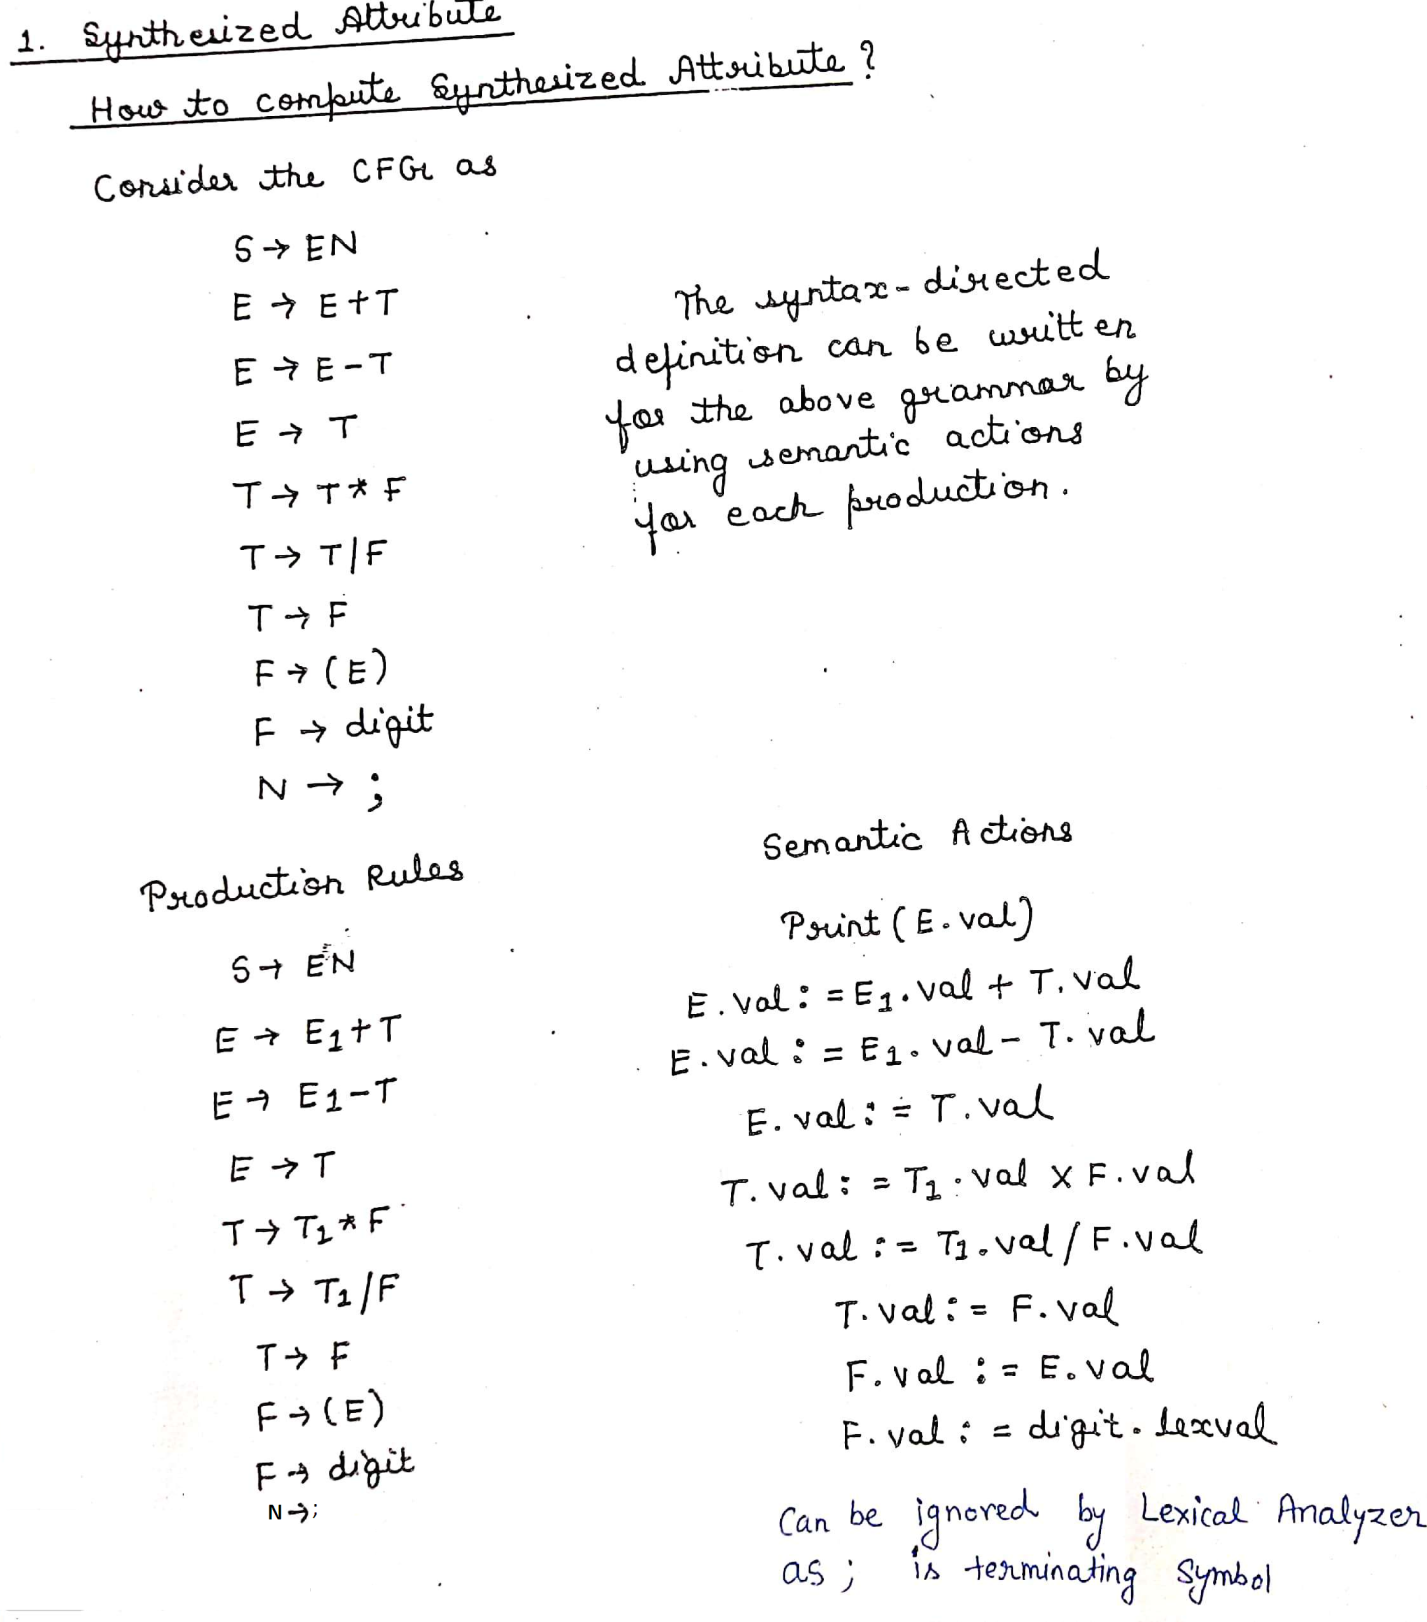 1. Synthesized Attribute
How to compute Synthesized Attribute?
Consider the CFG as
S → EN
E → E+T
E → E-T
E → T
T → T*F
T → T/F
T → F
F → (E)
F → digit
N → ;
The syntax-directed
definition can be written
for the above grammar by
using semantic actions
for each production.
Production Rules Semantic Actions
S → EN Print (E.val)
E → E₁+T E.val := E₁.val + T.val
E → E₁-T E.val := E₁.val - T.val
E → T E.val := T.val
T → T₁*F T.val := T₁.val x F.val
T → T₁/F T.val := T₁.val / F.val
T → F T.val := F.val
F → (E) F.val := E.val
F → digit F.val := digit.lexval
N → ; Can be ignored by Lexical Analyzer
as ; is terminating Symbol